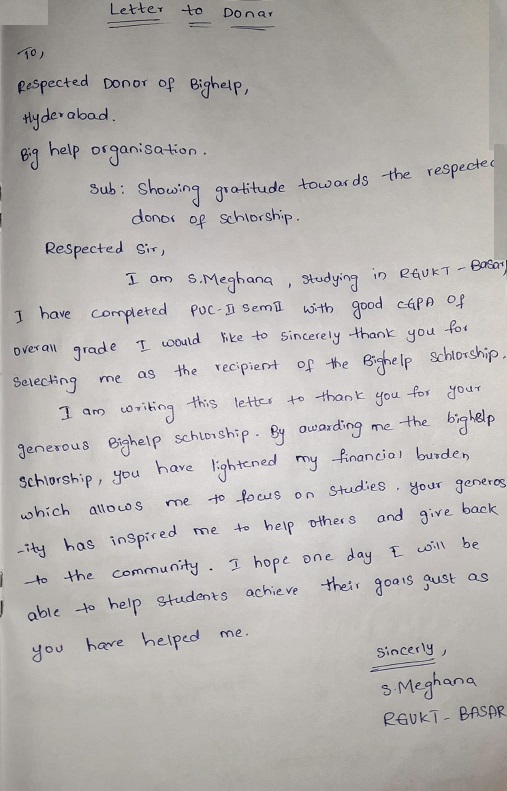 Letter to Donar
To,
Respected Donor of Bighelp,
Hyderabad.
Big help organisation.
Sub: Showing gratitude towards the respected
donor of schlorship.
Respected Sir,
I am S.Meghana, studying in RGUKT - Basar,
I have completed PUC-II Sem II with good CGPA of
overall grade I would like to sincerely thank you for
selecting me as the recipient of the Bighelp schlorship.
I am writing this letter to thank you for your
generous Bighelp schlorship. By awarding me the bighelp
schlorship, you have lightened my financial burden
which allows me to focus on studies. your generos
-ity has inspired me to help others and give back
to the community. I hope one day I will be
able to help students achieve their goals gust as
you have helped me.
Sincerly,
S.Meghana
RGUKT - BASAR